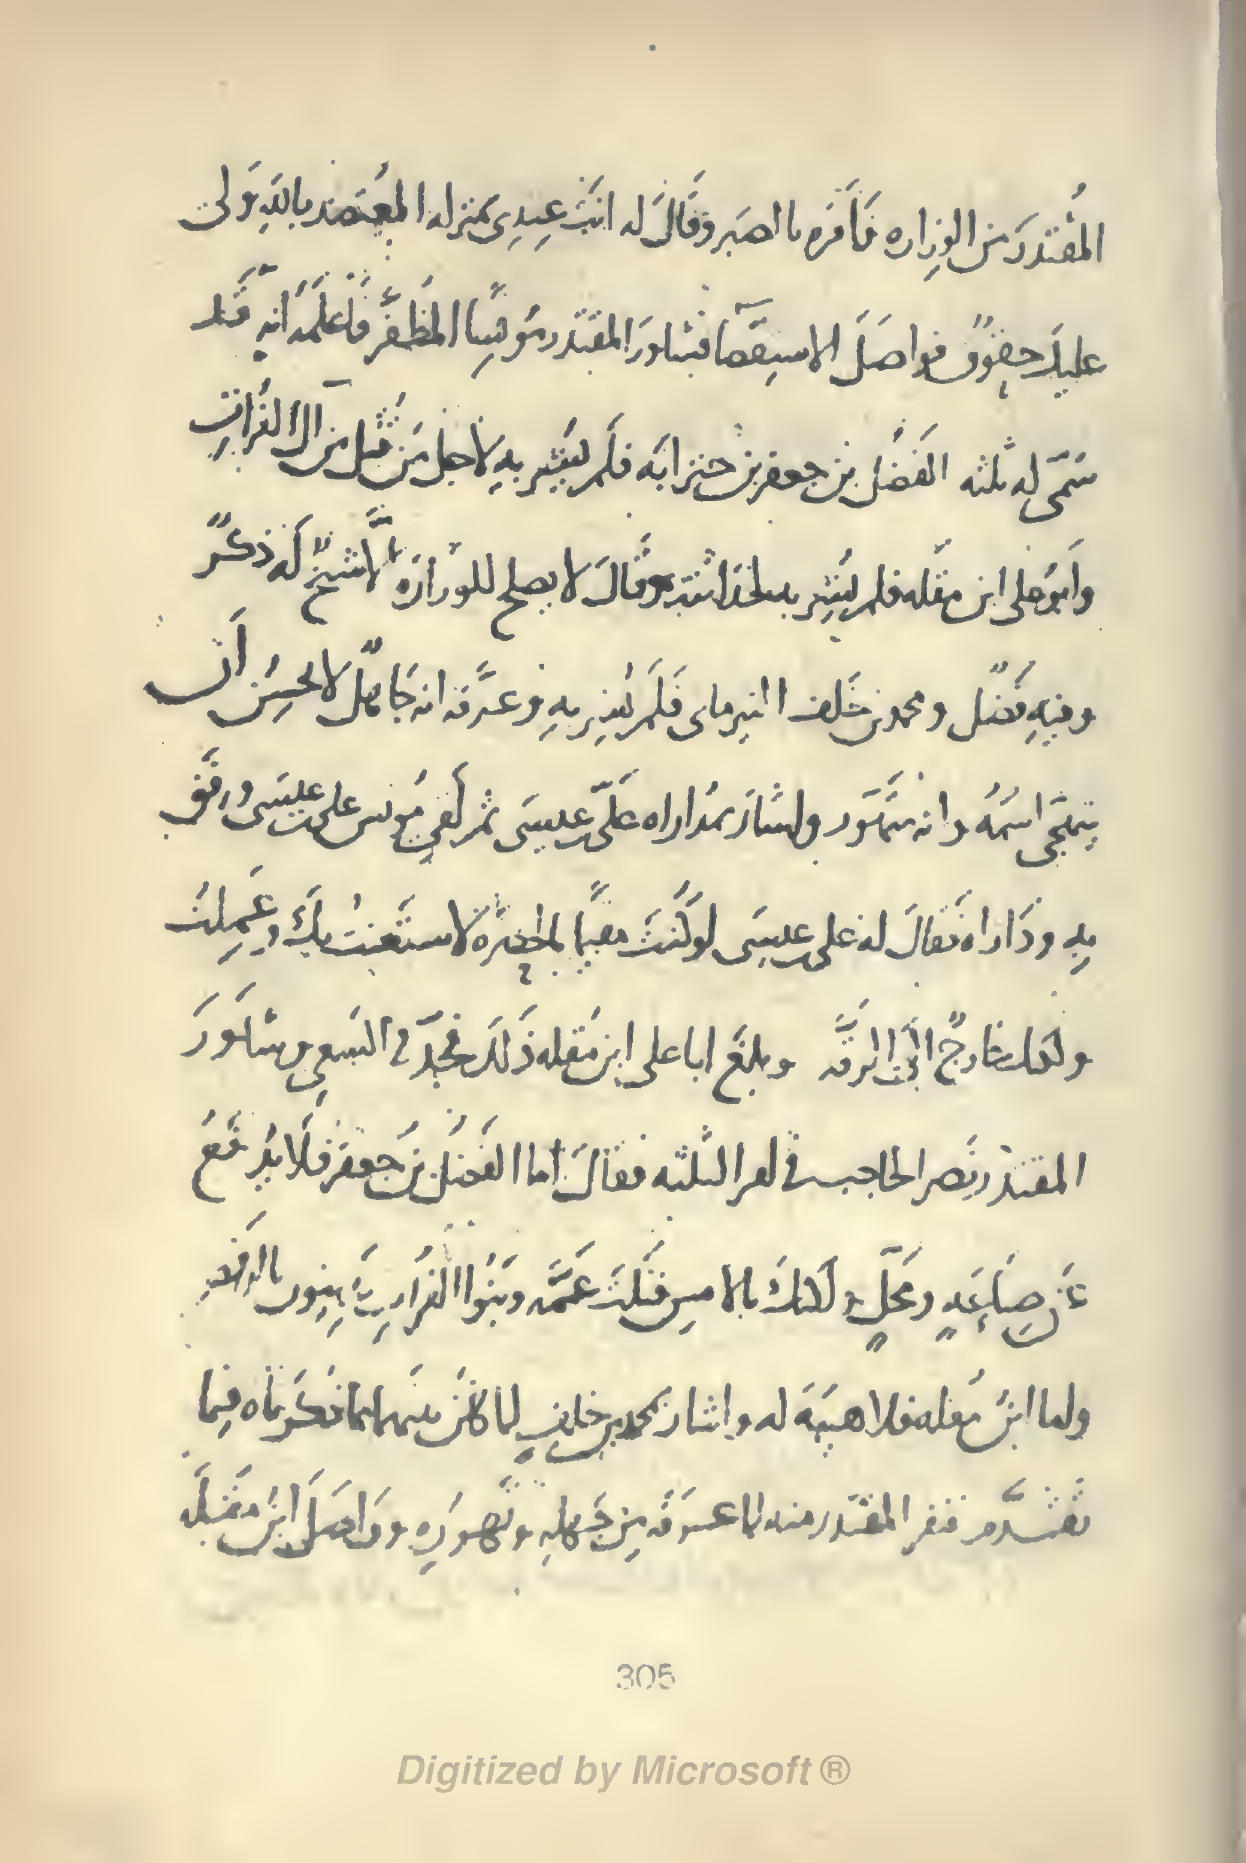 المُقْتَدرَ من الوزاره فَأَمَره بالصَبر وَقَالَ له انتَ عِندِى بمنزله المعُتَضد باللهِ وَلى
عليكَ حقوقٌ فواصَلَ الاستعفآ فشاورَ المقتدر مُونسًا المظَفَّر فَاعلَمَهُ انه قَد
سَمّى له ثلثه الفَضْل بن جعفر بن حنزابَه فلَم يُشِر بهِ لاجل مَن قُتِل من آل الفُراتِ
وابُو على ابن مقله فلم يُشِر به لحداثته وقَالَ لا يصلح للوزارَه الا شيخٌ لَه ذكرٌ
وفيهِ فَضل ومحمد بن خَلف النيرمانى فَلَم يُشِر بهِ وعرَّفه انه جَاهلٌ لا يحسِنُ أن
يتهَجّى اسمَهُ وانه متَهَور واشَارَ بمُداراه علَىّ بن عيسَى ثم لَقى مُونس على بن عيسَى ورفَق
بهِ ودَاراه فَقالَ له على بن عيسَى لو كُنتَ مقيمًا بالحضرَه لاستَعنتُ بكَ وعَمِلتُ
ولكنك خارجٌ الى الرقَّه وبلغَ ابا على ابن مُقله ذَلكَ فجدّ فى السَعى وشاوَرَ
المقتدر نَصر الحاجب فى امر الثلثه فقالَ أما الفَضل بن جَعفر فلَا يُدفَعُ
عَن صِنَاعَهٍ ومَحَلٍّ ولكنكَ بالامسِ قتَلتَ عَمَّه وبَنُوا الفُراتِ يَدِينون بالرفض
واما ابنُ مُقله فلا هيبَه له واشار بمحمد بن خلفٍ لما كانَ بينهما مما ذكَرناه فيما
تقَدَّم فنفر المقتَدر منه لما عرَفَه مِن جَهلهِ وتهَوره وواصَلَ ابنُ مقله
305
Digitized by Microsoft ®